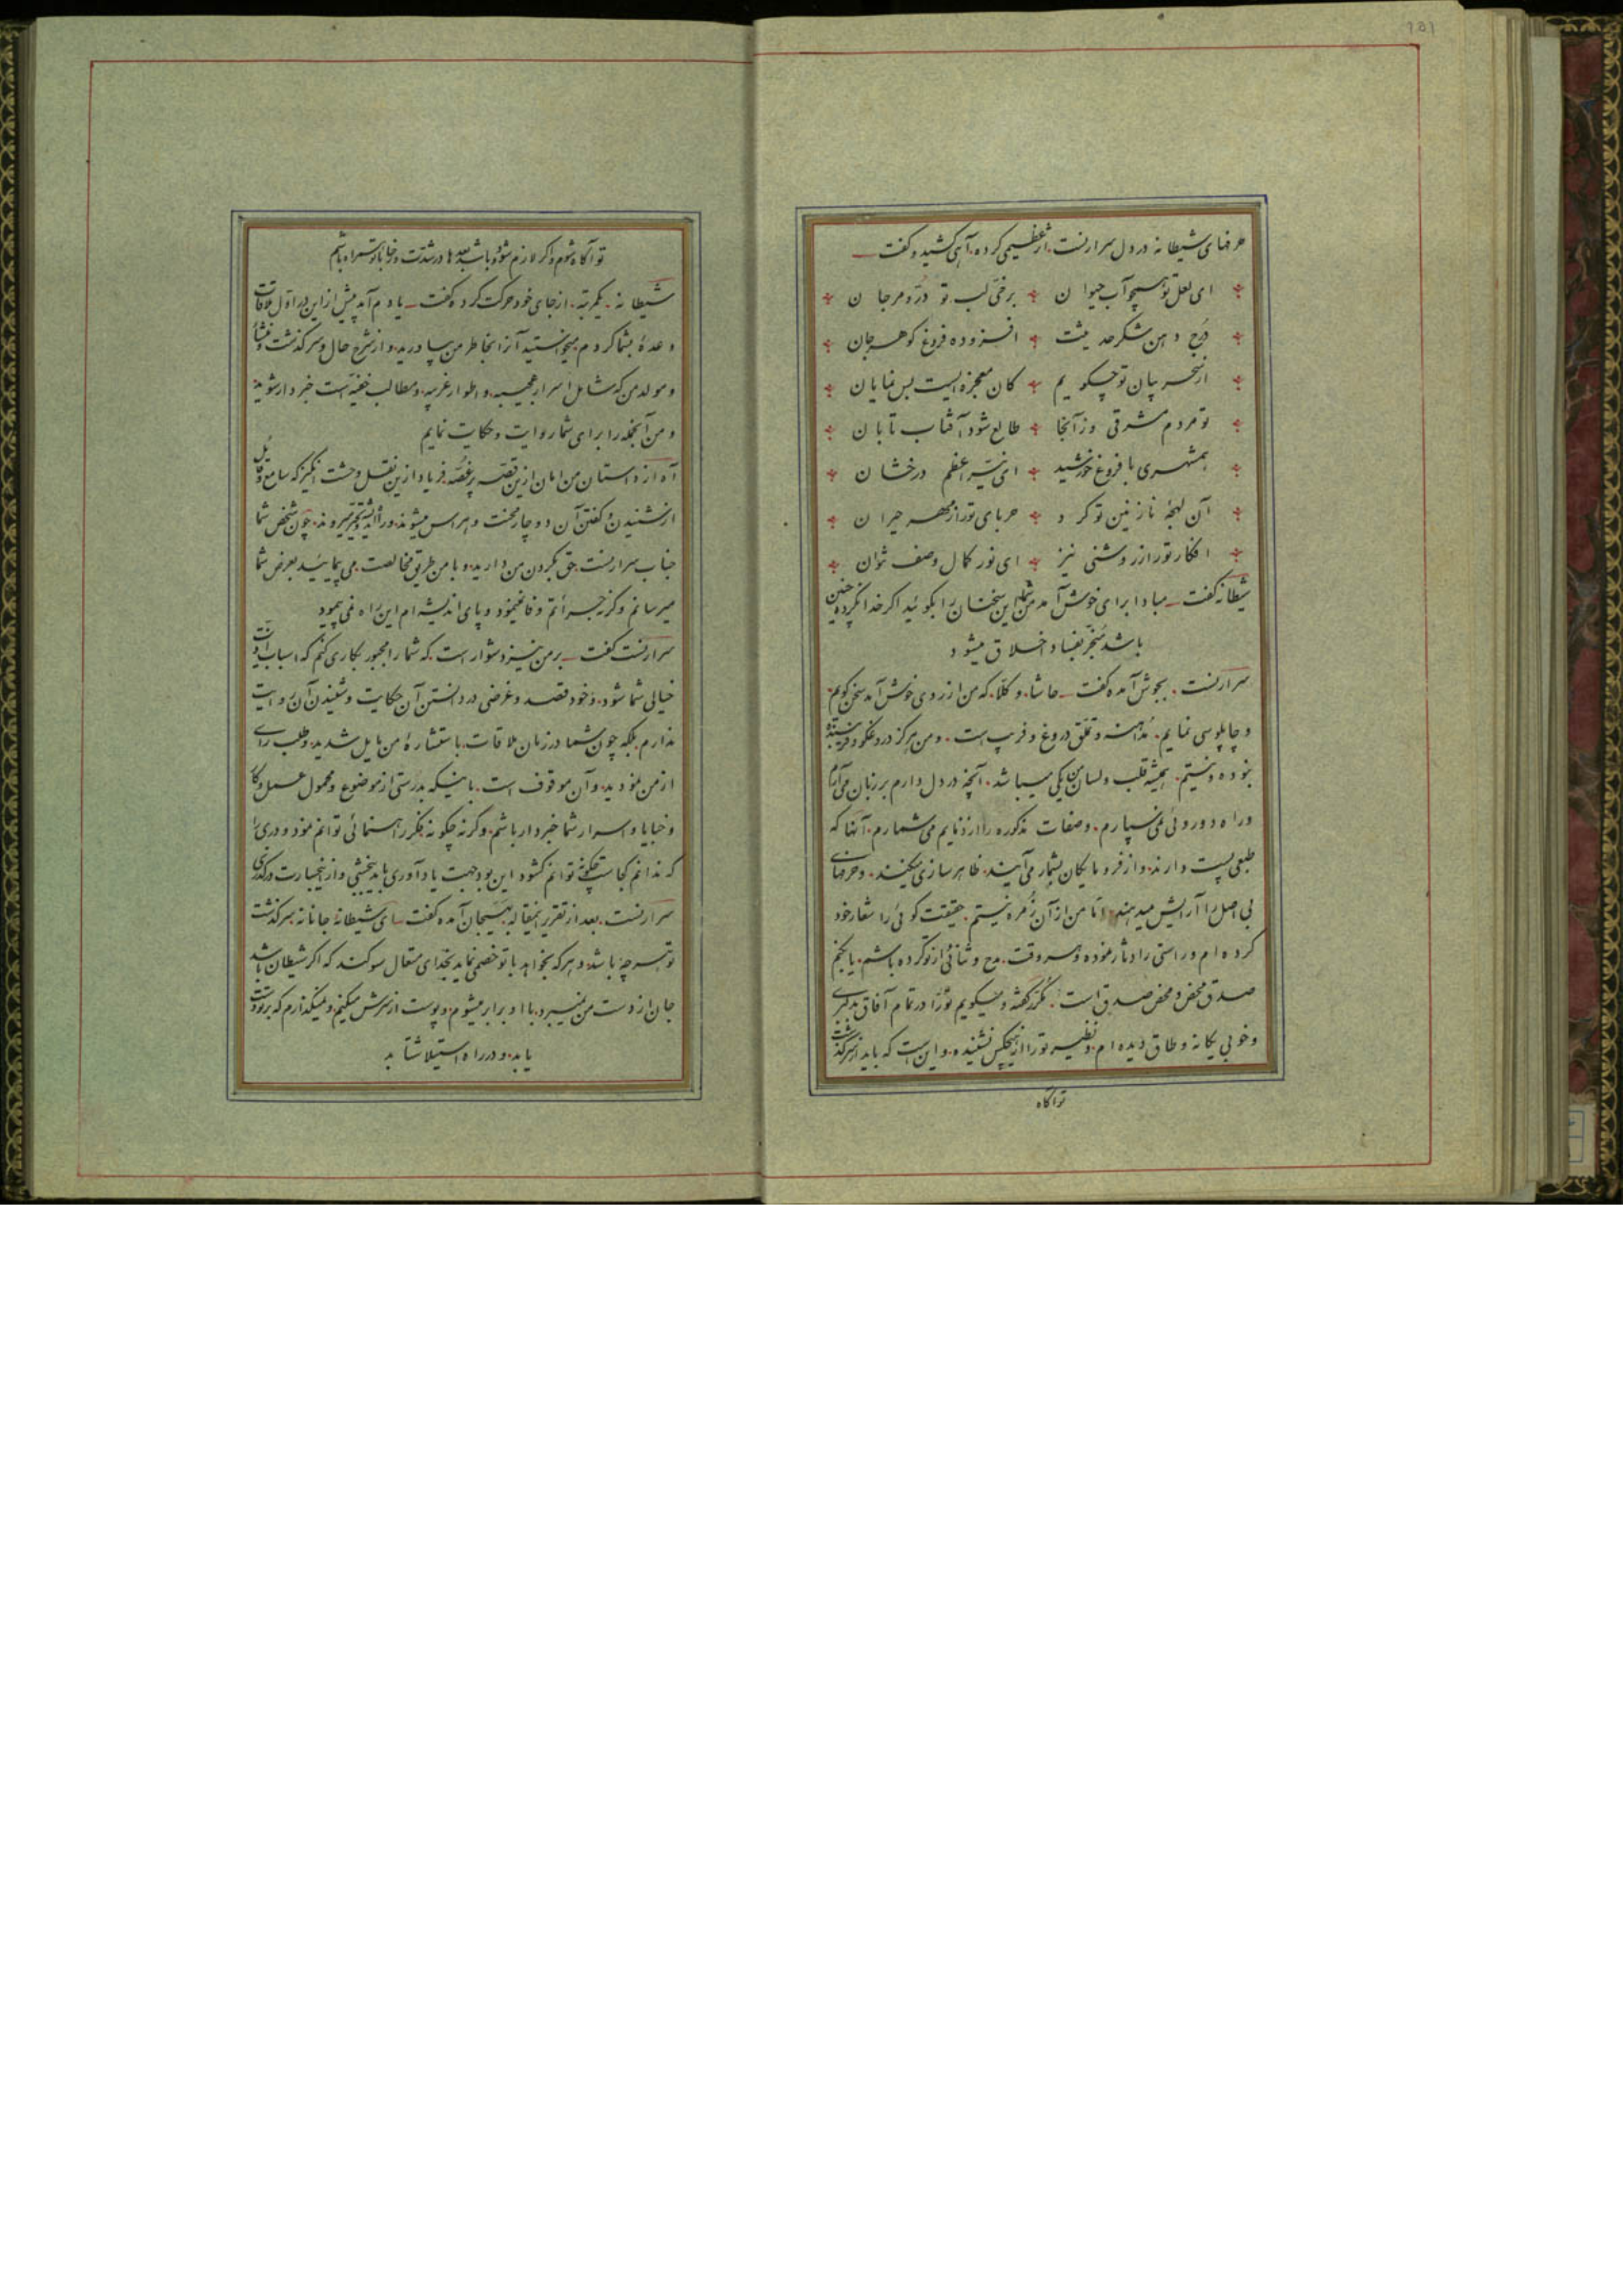 ۱۵۱
حرفهای شیطانه در دل سرارنست اثر عظیمی کرده آهی کشید و گفت
ای لعل تو همچو آب حیوان برخی لب تو درّ و مرجان
درج دهن شکر حدیثت افزوده فروغ گوهر جان
از سحر بیان تو چگویم کان معجزه ایست بس نمایان
تو مردم مشرقی وز آنجا طالع شود آفتاب تابان
همشهری با فروغ خورشید ای نیّر اعظم درخشان
آن لهجهٔ نازنین تو کرد حربای تو را ز مهر حیران
افکار تو را ز روشنی نیز ای نور کمال وصف نتوان
شیطانه گفت مبادا برای خوش آمد من این سخنان را بگوئید اگر خدا نکرده چنین
باشد منجر بفساد اخلاق میشود
سرارنست بجوش آمده گفت حاشا و کلّا که من از روی خوش آمد سخن گویم
و چاپلوسی نمایم مداهنه و تملّق دروغ و فریب است و من هرگز دروغگو و فریبنده
نبوده و نیستم همیشه قلب و لسان من یکی میباشد آنچه در دل دارم بر زبان می‌آرم
و راه دوروئی نمی سپارم و صفات مذکوره را از رذایم می شمارم آنها که
طبعی پست دارند و از فرومایگان بشمار می‌آیند ظاهر سازی میکنند و حرفهای
بی اصل را آرایش میدهند امّا من از آن زمره نیستم حقیقت گوئی را شعار خود
کرده ام و راستی را دثار نموده و هر وقت مدح و ثنائی از تو کرده باشم یا بکنم
صدق محض و محض صدق است مکرر گفته و میگویم تو را در تمام آفاق بدلبری
و خوبی یگانه و طاق دیده ام و نظیر تو را از هیچکس نشنیده و این است که باید از سرگذشت
تو آگاه
تو آگاه شوم و اگر لازم شود و باشد بعدها در شدّت و رخا با تو همراه باشم
شیطانه یکمرتبه از جای خود حرکت کرده گفت یادم آمد پیش از این در اول ملاقات
وعدهٔ بشما کردم میخواستید آنرا بخاطر من بیاورید و از شرح حال و سرگذشت و منشأ
و مولد من که شامل اسرار عجیبه و اطوار غریبه و مطالب خفیّه است خبردار شوید
و من آنجمله را برای شما روایت و حکایت نمایم
آه از داستان من امان ازین قصّه پرغصّه فریاد ازین نقل وحشت انگیز که سامع و قایل
از شنیدن و گفتن آن دوچار محنت و هراس میشوند و در اندیشه و تحیّر میروند چون شخص شما
جناب سرارنست حق بگردن من دارید و با من طریق مخالصت می پیمائید بعرض شما
میرسانم وگرنه جرأتم وفا نمینمود و پای اندیشه ام این راه نمی پیمود
سرارنست گفت بر من نیز دشوار است که شما را مجبور بکاری کنم که اسباب اذیّت
خیالی شما شود و خود قصد و غرضی در دانستن آن حکایت و شنیدن آن روایت
ندارم بلکه چون شما در زمان ملاقات باستشارهٔ من مایل شدید و طلب رأی
از من نمودید و آن موقوف است باینکه بدرستی از موضوع و محمول عمل و کار
و خبایا و اسرار شما خبردار باشم وگرنه چگونه بفکر راهنمائی توانم نمود و دری را
که ندانم کجاست چگونه توانم گشود این بود جهت یادآوری باید ببخشی و از این جسارت درگذری
سرارنست بعد از تقریر اینمقاله بهیجان آمده گفت ای شیطانهٔ جانانه سرگذشت
تو هر چه باشد و هر که بخواهد با تو خصمی نماید بخدای متعال سوگند که اگر شیطان باشد
جان از دست من نمیبرد با او برابر میشوم و پوست از سرش میکنم و نمیگذارم که بر تو دست
یابد و در راه استیلا شتابد